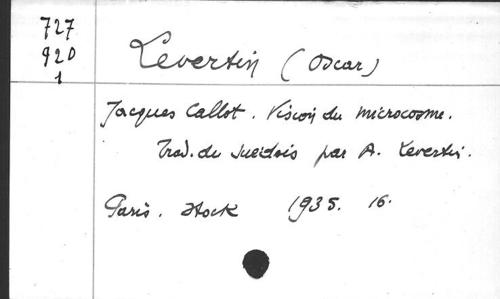 727
920
1
Levertin (Oscar)
Jacques Callot. Vision du microcosme.
Trad. du suédois par A. Levertin.
Paris. Stock 1935. 16.